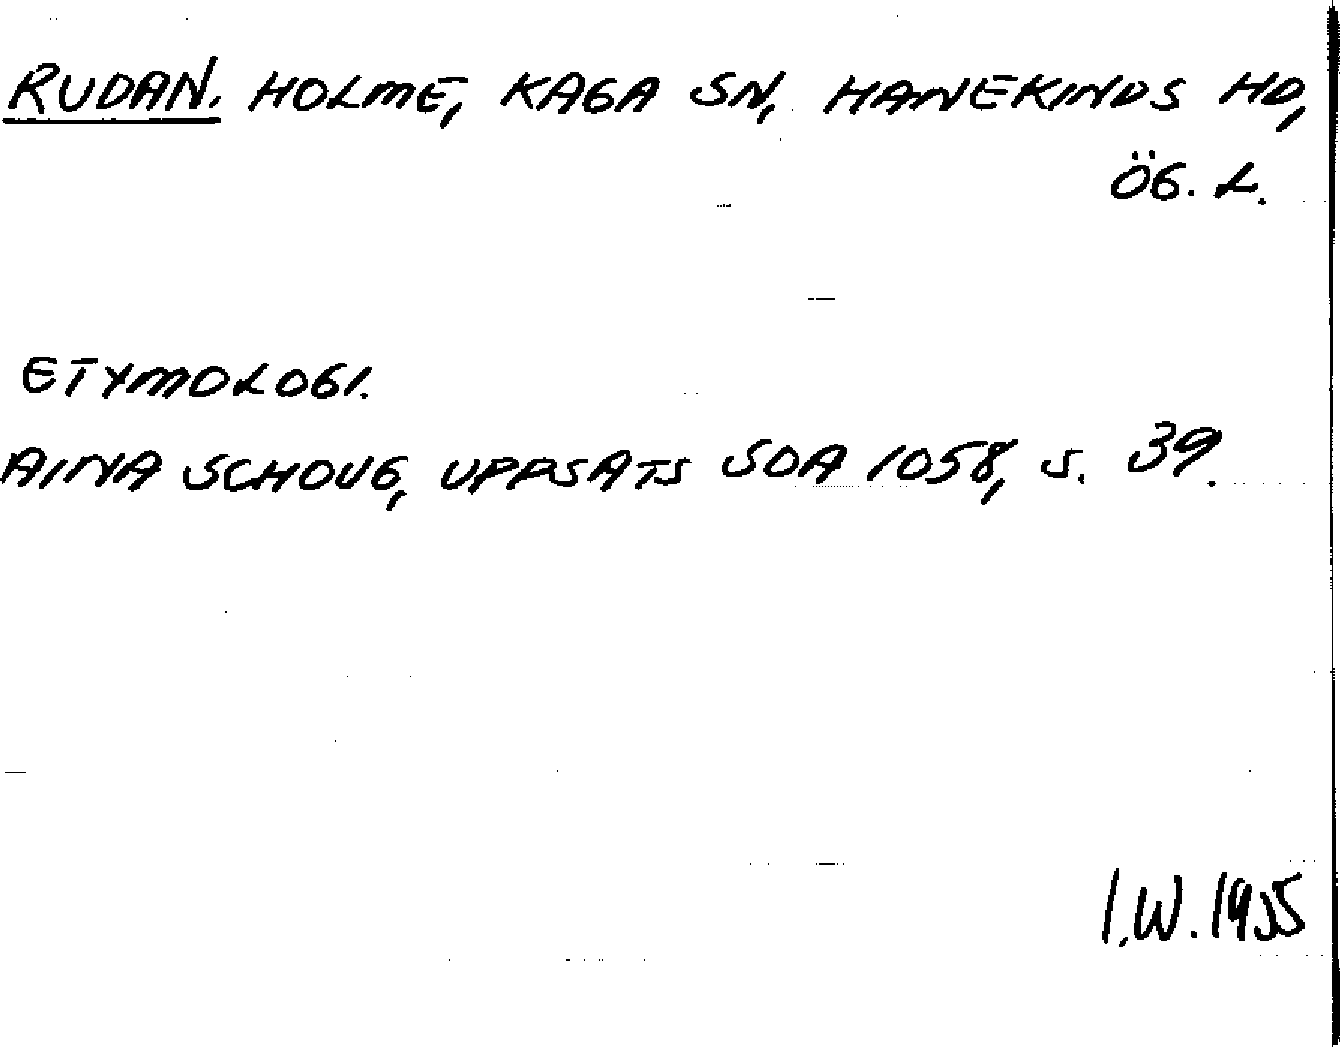 RUDAN. HOLME, KAGA SN, HANEKINDS HD,
ÖG. L.
ETYMOLOGI.
AINA SCHOUG, UPPSATS SOA 1058, S. 39.
I.W. 1955